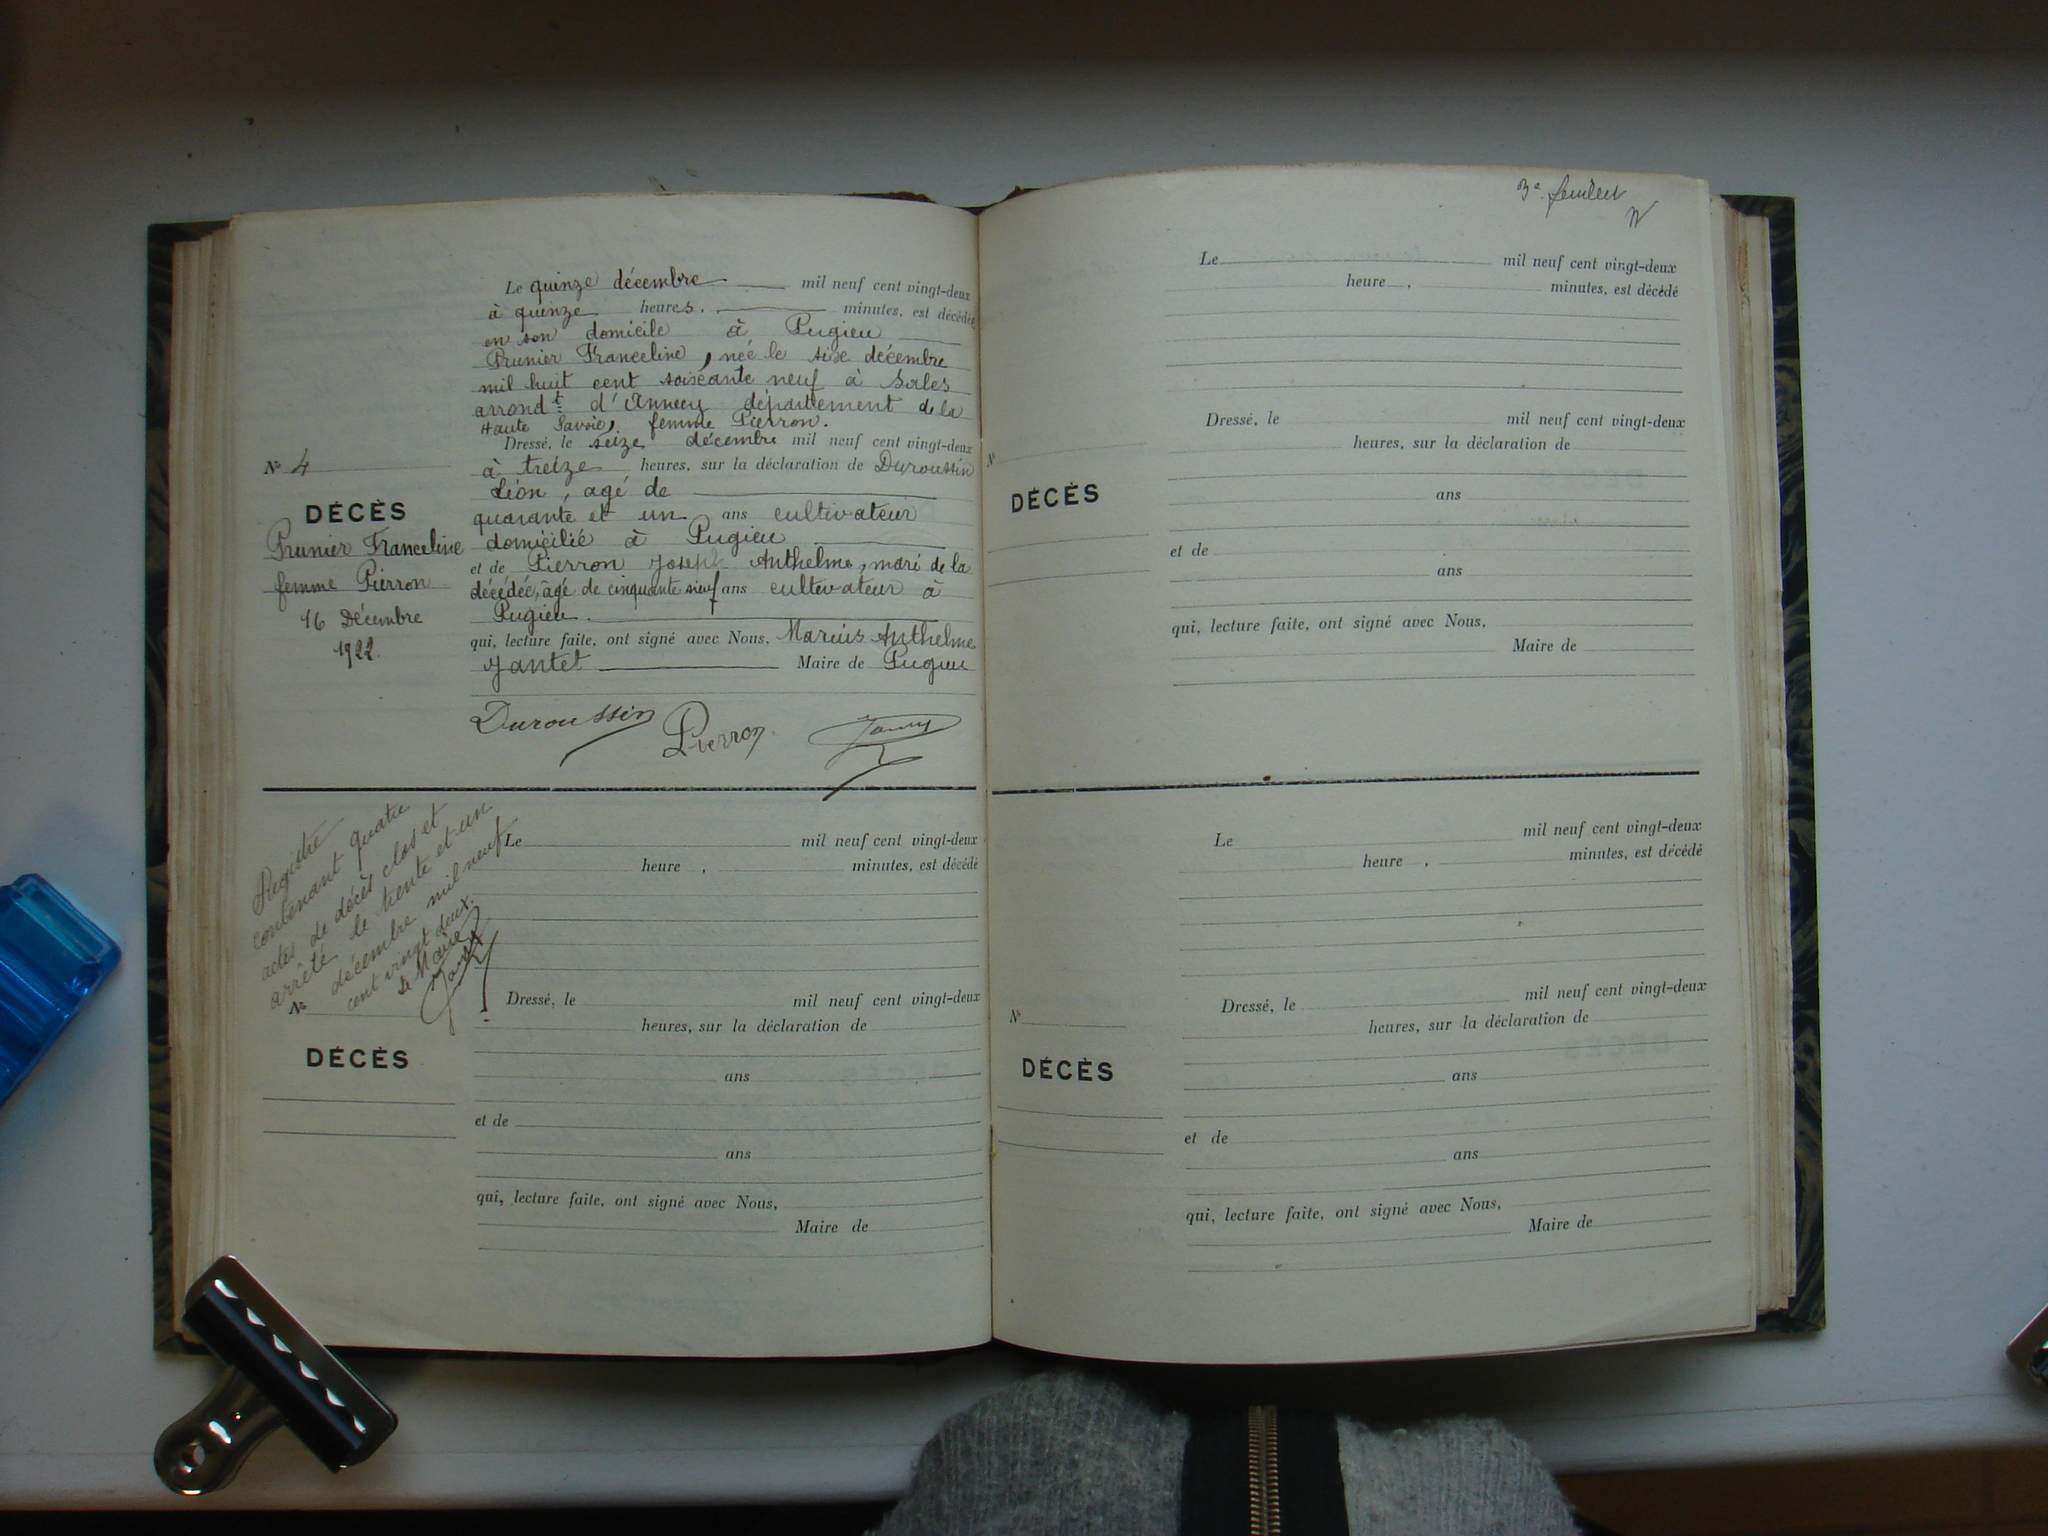 Le quinze décembre mil neuf cent vingt-deux
à quinze heures, minutes, est décédée
en son domicile à Pugieu
Prunier Franceline, née le sise décembre
mil huit cent soixante neuf à Sales
arrondt d'Annecy département de la
Haute Savoie, femme Pierron.
Dressé, le seize décembre mil neuf cent vingt-deux
à treize heures, sur la déclaration de Duroussin
Léon, agé de
quarante et un ans cultivateur
domicilié à Pugieu
et de Pierron Joseph Anthelme, mari de la
décédée, âgé de cinquante neuf ans cultivateur à
Pugieu.
qui, lecture faite, ont signé avec Nous, Marius Anthelme
Jantet Maire de Pugieu
Duroussin Pierron
N° 4
DÉCÈS
Prunier Franceline
femme Pierron
16 Décembre
1922
Registre
contenant quatre
actes de décès clos et
arrêté le trente et un
décembre mil neuf
cent vingt deux.
Le Maire
Le mil neuf cent vingt-deux
heure , minutes, est décédé
Dressé, le mil neuf cent vingt-deux
heures, sur la déclaration de
N°
DÉCÈS
ans
et de
ans
qui, lecture faite, ont signé avec Nous,
Maire de
3e
Le mil neuf cent vingt-deux
heure , minutes, est décédé
Dressé, le mil neuf cent vingt-deux
heures, sur la déclaration de
N°
DÉCÈS
ans
et de
ans
qui, lecture faite, ont signé avec Nous,
Maire de
Le mil neuf cent vingt-deux
heure , minutes, est décédé
Dressé, le mil neuf cent vingt-deux
heures, sur la déclaration de
N°
DÉCÈS
ans
et de
ans
qui, lecture faite, ont signé avec Nous,
Maire de